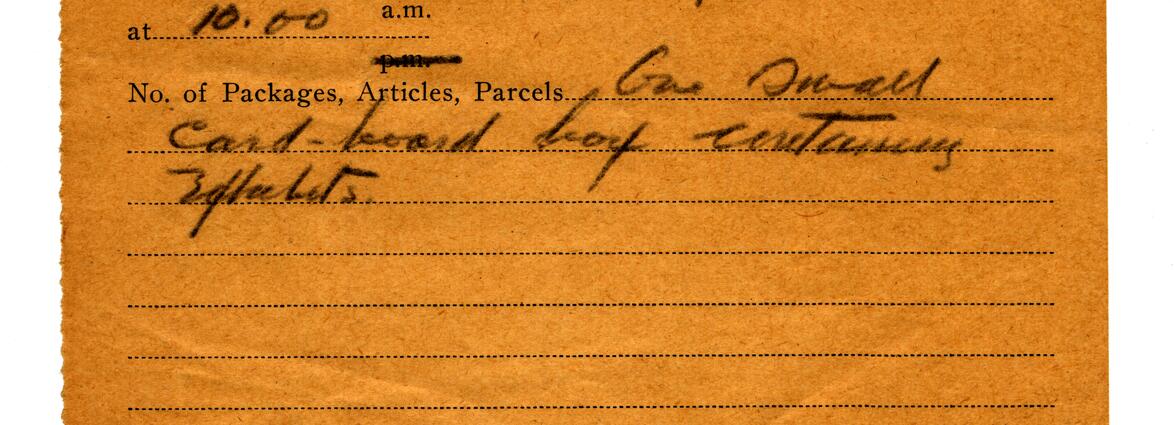 a.m.
at 10.00
p.m.
No. of Packages, Articles, Parcels One small
card-board box containing